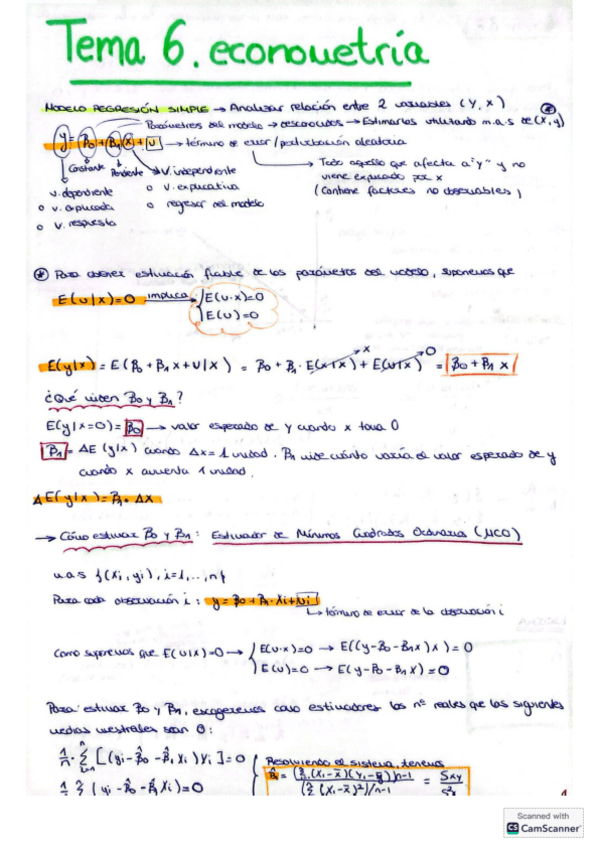 Tema 6. econometría
MODELO REGRESIÓN SIMPLE → Analizar relación entre 2 variables (Y, X)
Parámetros del modelo → desconocidos → Estimarlos utilizando m.a.s de (X, Y)
y = β0 + β1 X + U → término de error / perturbación aleatoria
Constante Pendiente V. independiente
→ Todo aquello que afecta a "y" y no viene explicado por x
(Contiene factores no observables)
v. dependiente
o v. explicada
o v. respuesta
o v. explicativa
o regresor del modelo
* Para obtener estimación fiable de los parámetros del modelo, suponemos que
E(u|x)=0 implica → { E(u·x)=0
E(u)=0
E(y|x) = E(β0 + β1 x + u|x) = β0 + β1 · E(x|x) + E(u|x) = β0 + β1 x
x 0
¿Qué miden β0 y β1?
E(y|x=0) = β0 → valor esperado de y cuando x toma 0
β1 = ΔE(y|x) cuando Δx = 1 unidad. β1 mide cuánto varía el valor esperado de y
cuando x aumenta 1 unidad.
ΔE(y|x) = β1 · Δx
→ Cómo estimar β0 y β1: Estimador de Mínimos Cuadrados Ordinarios (MCO)
m.a.s {(xi, yi), i=1,...,n}
Para cada observación i: y = β0 + β1 · Xi + ui
↳ término de error de la observación i
Como suponemos que E(u|x)=0 → { E(u·x)=0 → E((y-β0-β1x)x) = 0
E(u)=0 → E(y-β0-β1x) = 0
Para estimar β0 y β1, escogeremos como estimadores los nº reales que las siguientes
medias muestrales sean 0:
1/n · Σ(i=1, n) [(yi - β̂0 - β̂1 xi) xi] = 0
1/n Σ (yi - β̂0 - β̂1 xi) = 0
Resolviendo el sistema, tenemos
β̂1 = (Σ (xi - x̄)(yi - ȳ))/n-1 / (Σ (xi - x̄)²)/n-1 = Sxy / S²x
Scanned with
CS CamScanner